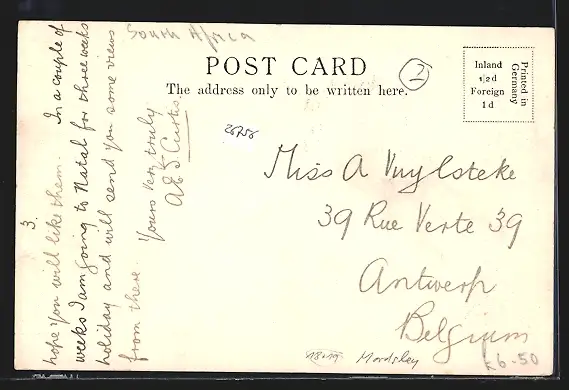 South Africa
POST CARD
The address only to be written here.
2
Inland
1/2d
Foreign
1d
Printed in
Germany
3.
hope you will like them. In a couple of
weeks I am going to Natal for three weeks
holiday and will send you some views
from there. Yours very truly
A E J Curtis
26756
Miss A Vuylsteke
39 Rue Verte 39
Antwerp
Belgium
18-19 Mordsley
£6-50